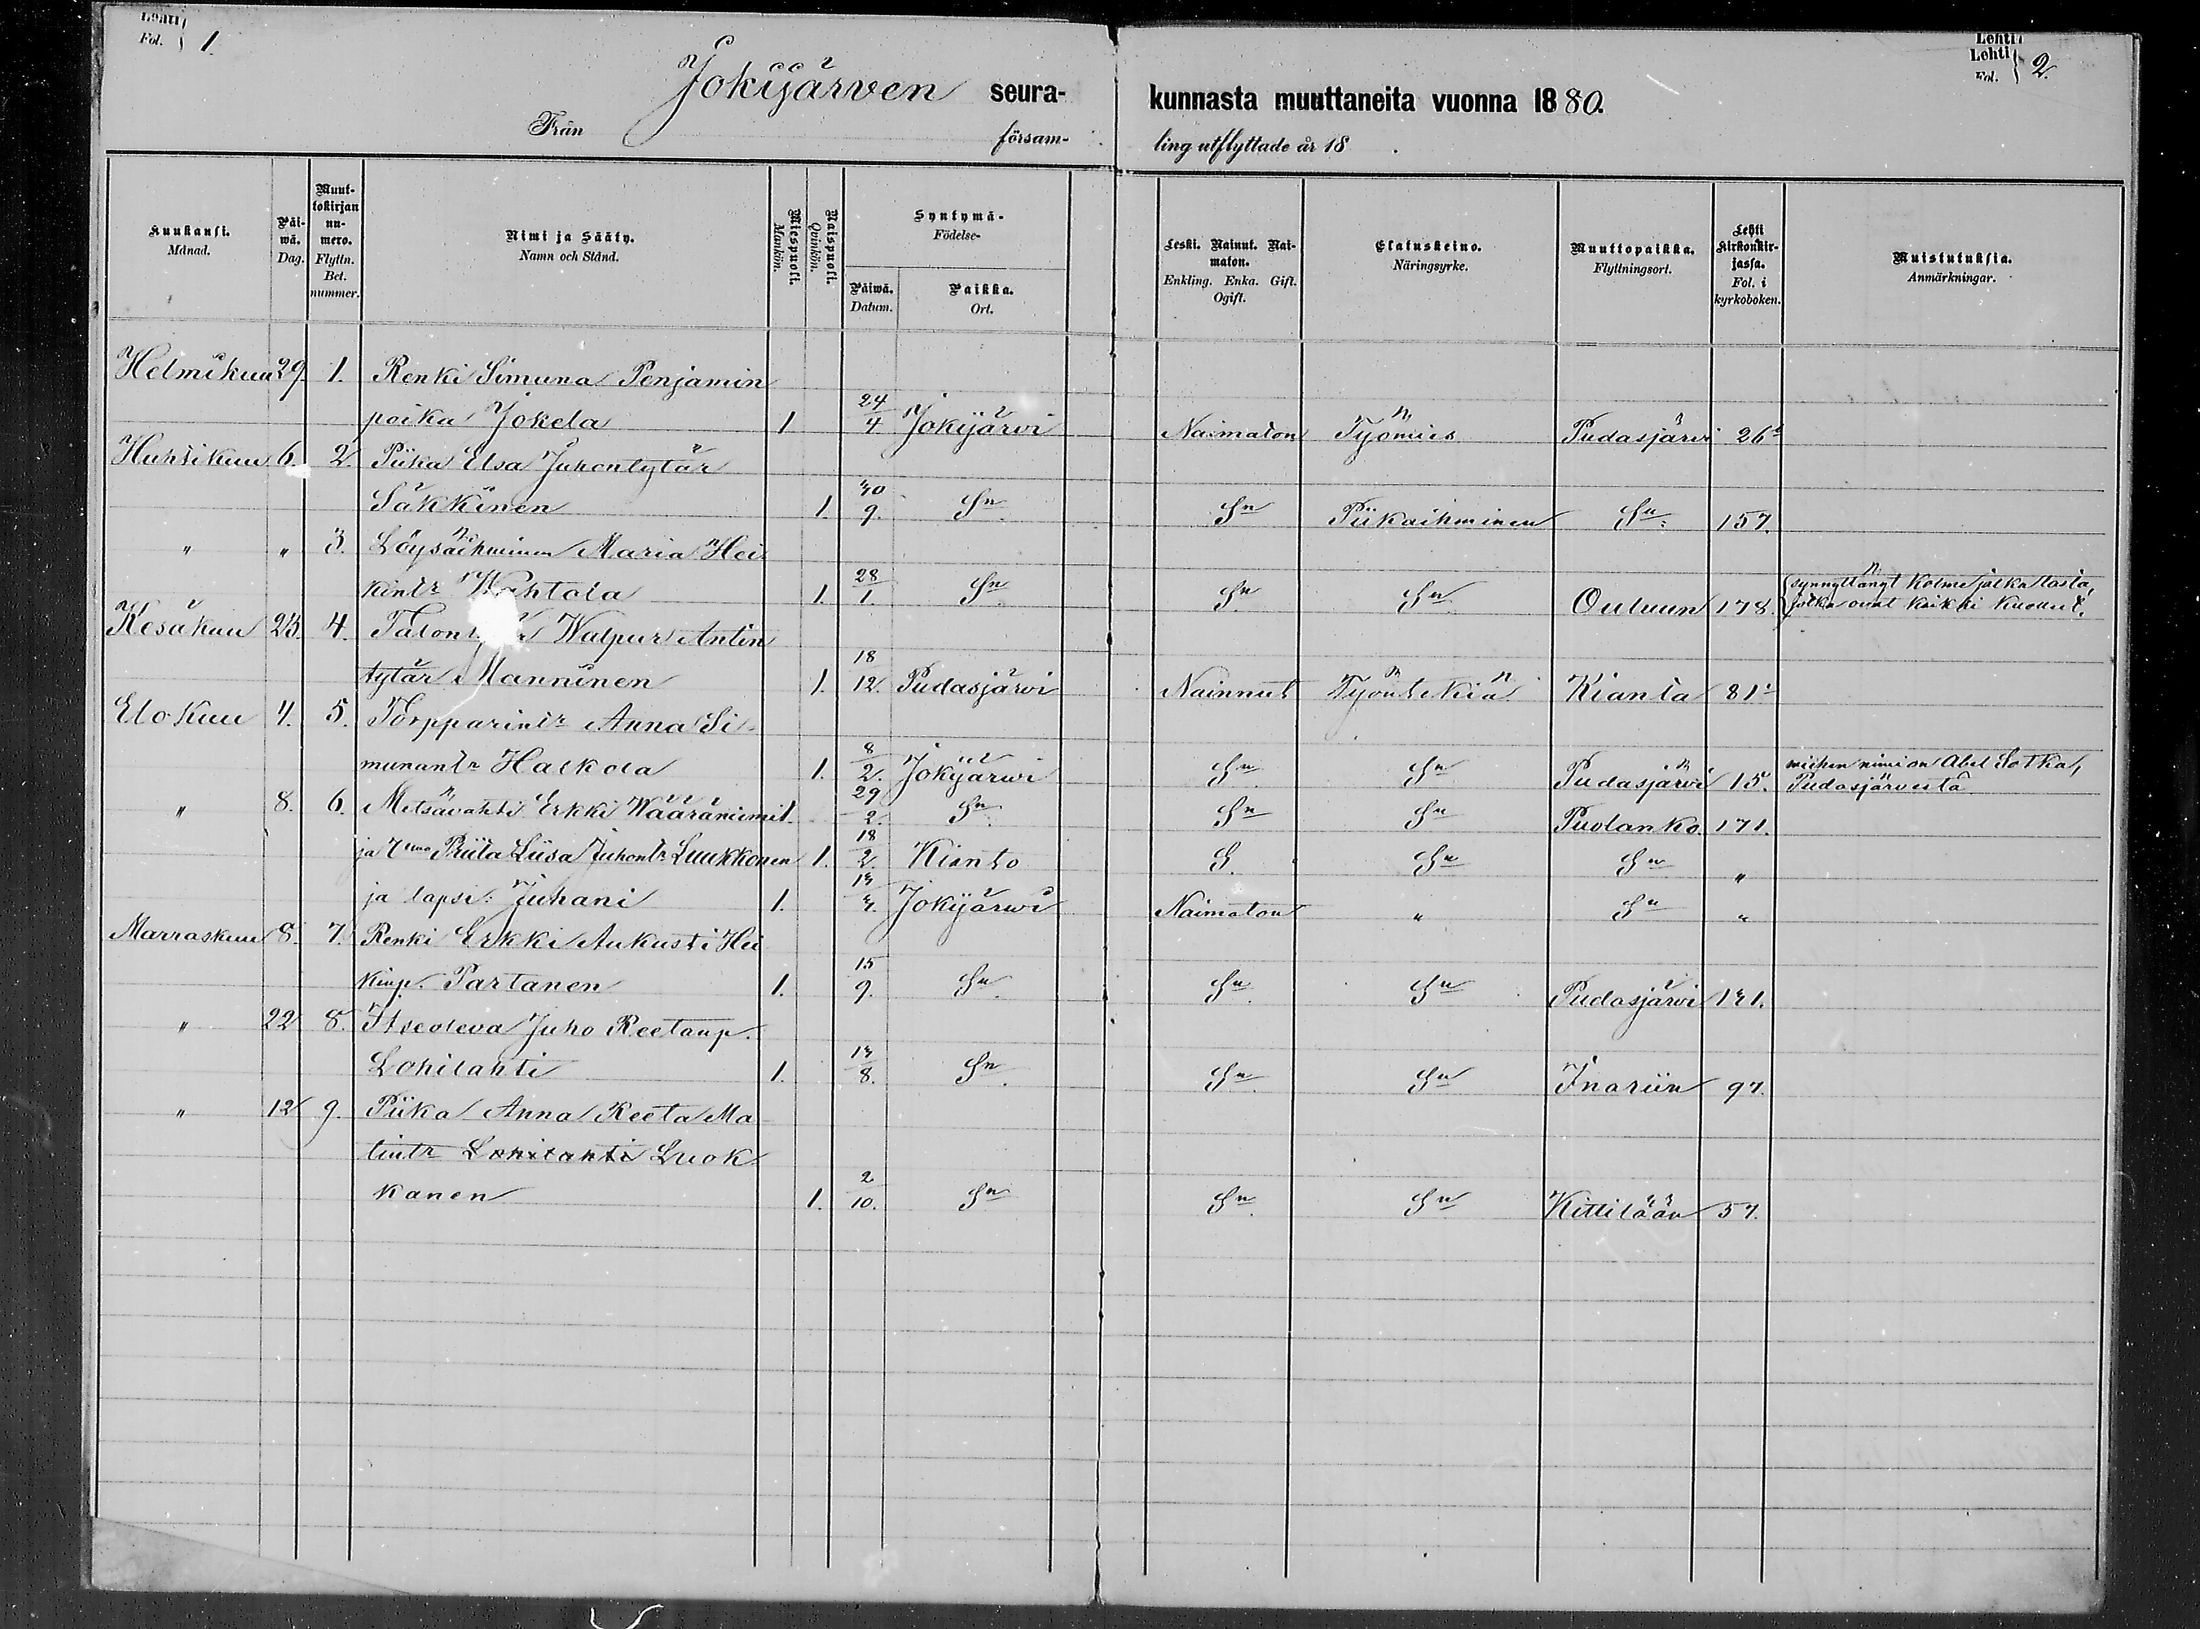 Lehti
Fol. 1.
Lehti
Lehti
Fol. 2.
Jokijärven seura-
kunnasta muuttaneita vuonna 1880.
Från
försam-
ling utflyttade år 18 .
Kuukausi. Månad.
Päi-wä. Dag.
Muut-tokirjan nu-mero. Flyttn. Bet. nummer.
Nimi ja Sääty. Namn och Stånd.
Miespuoli. Mankön.
Naispuoli. Qvinkön.
Syntymä- Födelse-
Päiwä. Datum.
Paikka. Ort.
Leski. Nainut. Nai-maton. Enkling. Enka. Gift. Ogift.
Elatuskeino. Näringsyrke.
Muuttopaikka. Flyttningsort.
Lehti Kirkonkir-jassa. Fol. i kyrkoboken.
Muistutuksia. Anmärkningar.
Helmikuu 29. 1. Renki Simuna Penjamin
poika Jokela 1 24/4 Jokijärvi Naimaton Työmies Pudasjärvi 26
Huhtikuu 6. 2. Piika Elsa Juhontytär
Säkkinen 1. 30/9. Sn Sn Piikaihminen Sn 157.
" " 3. Löysäihminen Maria Hei
kintr Wahtola 1. 28/1. Sn Sn Sn Ouluun 178. synnyttänyt kolme jalkalasta,
jotka ovat kaikki kuollut.
Kesäkuu 23. 4. Talon Walpuri Antin
tytär Manninen 1. 18/12. Pudasjärvi Nainnut Kianta 81
Elokuu 4. 5. Torpparintr Anna Si-
munantr Halkola 1. 8/2. Jokijärwi Sn Sn Pudasjärvi 15. miehen nimi on Abel Sotka,
Pudasjärveltä
" 8. 6. Metsävahti Erkki Wääräniemi 1. 29/2. Sn Sn Sn Puolanko 171.
ja Wmo Priita Liisa Juhontr Luukkonen 1. 18/2. Kianto S. Sn Sn "
ja lapsi: Juhani 1. 13/3. Jokijärwi Naimaton " Sn "
Marraskuu 8. 7. Renki Erkki Aukusti Hei
kinp. Partanen 1. 15/9. Sn Sn Sn Pudasjärvi 131.
" 22 8. Itseoleva Juho Reetanp.
Lohilahti 1. 13/8. Sn Sn Sn Inariin 97.
" 12 9. Piika Anna Reeta Ma
tintr Lohilahti Luok
kanen 1. 2/10. Sn Sn Sn Kittilään 57.